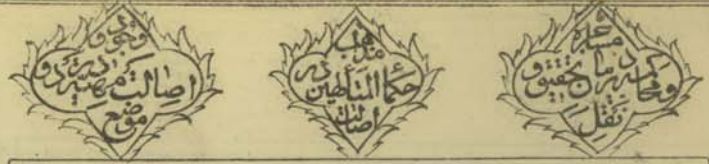 و محاکمه در مان تحقیق و
نقل
مذهب
حکماء المتألهین در
اصالت
وجود و
اصالت مهیة در دو
موضع